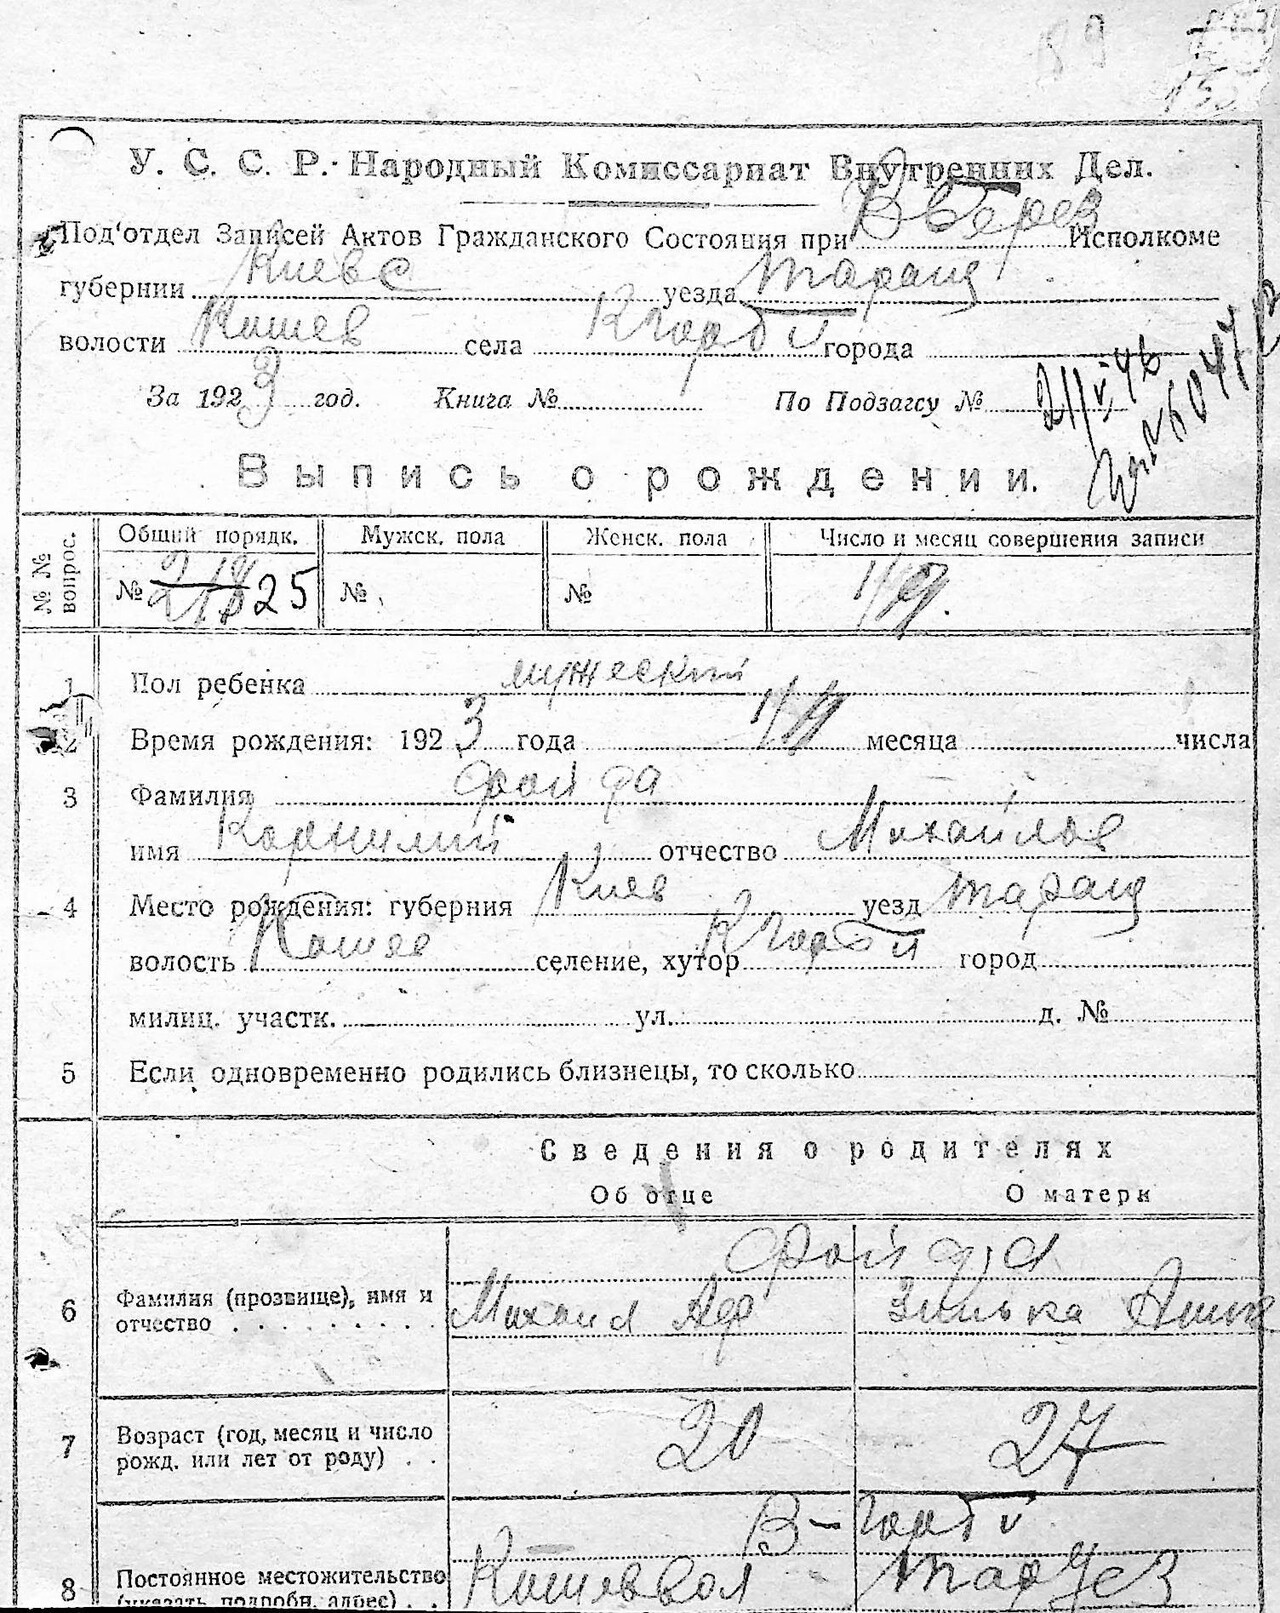 89
У. С. С. Р. Народный Комиссариат Внутренних Дел.
Под'отдел Записей Актов Гражданского Состояния при Исполкоме
губернии Киевс уезда Таращ
волости Кошев села города
За 1923 год. Книга № По Подзагсу №
Выпись о рождении.
№ № вопрос. Общий порядк. Мужск. пола Женск. пола Число и месяц совершения записи
№ 25 № №
1 Пол ребенка мужеский
2 Время рождения: 1923 года месяца числа
3 Фамилия Фойда
имя Корнилий отчество Михайлов
4 Место рождения: губерния Киев уезд Таращ
волость Кошев селение, хутор город
милиц. участк. ул. д. №
5 Если одновременно родились близнецы, то сколько
Сведения о родителях
Об отце О матери
Фойда
6 Фамилия (прозвище), имя и
отчество Михаил Зинька
7 Возраст (год, месяц и число
рожд. или лет от роду) 20 27
8 Постоянное местожительство
(указать подробн. адрес)